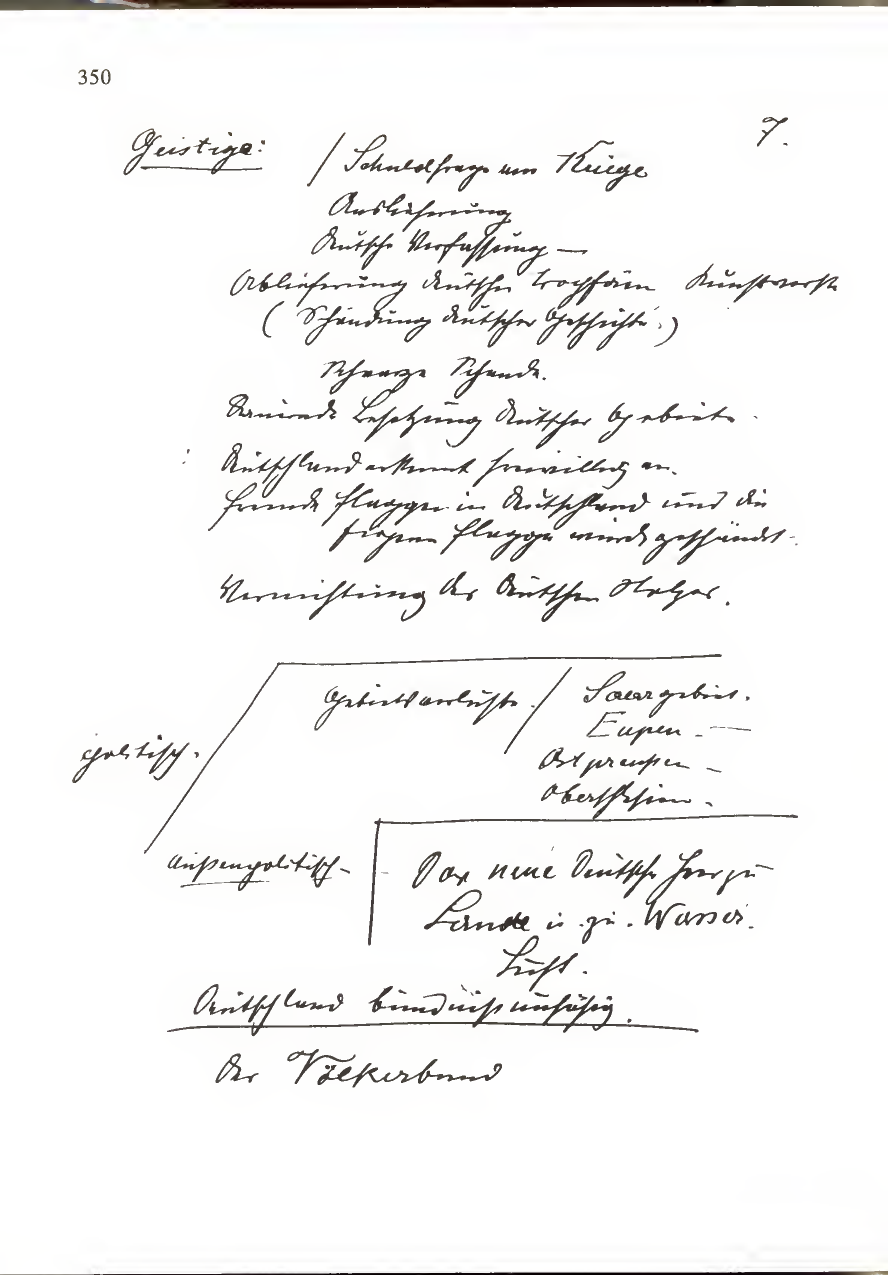 350
7.
Geistige: / Schuldfrage am Kriege
Auslieferung
deutsche Verfassung —
Ablieferung deutscher Trophäen Kunstwerke
(Schändung deutscher Geschichte.)
Schwarze Schande.
Dauernde Besetzung deutscher Gebiete.
Deutschland erkennt freiwillig an.
fremde Flaggen in Deutschland und die
Flagge wird geschändet.
Vernichtung des deutschen Stolzes.
Gebietsverluste. / Saargebiet.
Eupen. —
politisch.
Ostpreußen –
Oberschlesien.
außenpolitisch – Das neue deutsche Heer zu
Lande u. zu. Wasser.
Luft.
Deutschland bündnißunfähig.
Der Völkerbund